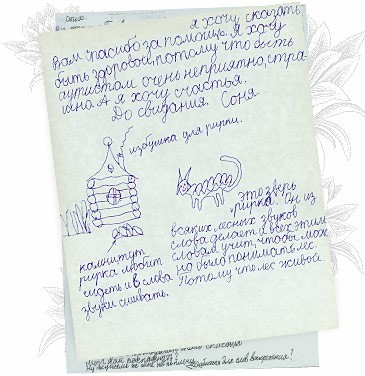 я хочу сказать
Вам спасибо за помощь. Я хочу
быть здоровой, потому что быть
аутистом очень неприятно, стра-
шно. А я хочу счастья.
До свидания. Соня
избушка для рирки.
это зверь
"рирка". Он из
всяких лесных звуков
слова делает и всех этим
словам учит, чтобы мож
но было понимать лес.
Потому что лес живой.
камни тут
рирка любит
сидеть и в слова
звуки сшивать.